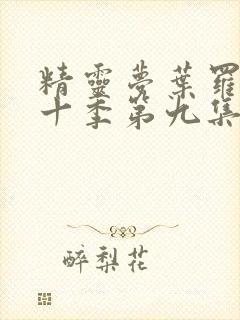 精靈夢葉羅
十季第九集
醉梨花